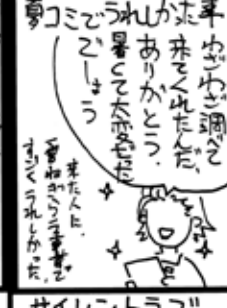 夏コミでうれしかった事
わざわざ調べて
来てくれたんだ、
ありがとう、
暑くて大変だった
でしょう
来た人に、
言葉で
すごくうれしかった。
サイレントラブ